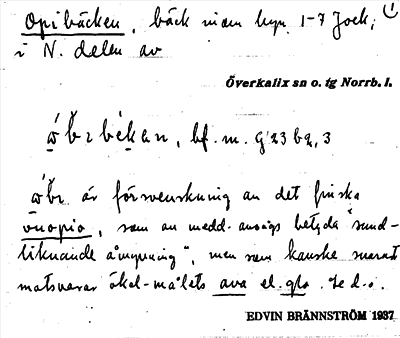 Opibäcken, bäck inom hyn 1-7 Jock,
i N. delen av
Överkalix sn o. tg Norrb. l.
bf. m. G 23 b 2, 3
är försvenskning av det finska
vuopio, som av medd. ansågs betyda "sund-
liknande åmynning", men som kanske snarast
motsvarar ökal-målets ava el. Se d.o.
EDVIN BRÄNNSTRÖM 1937